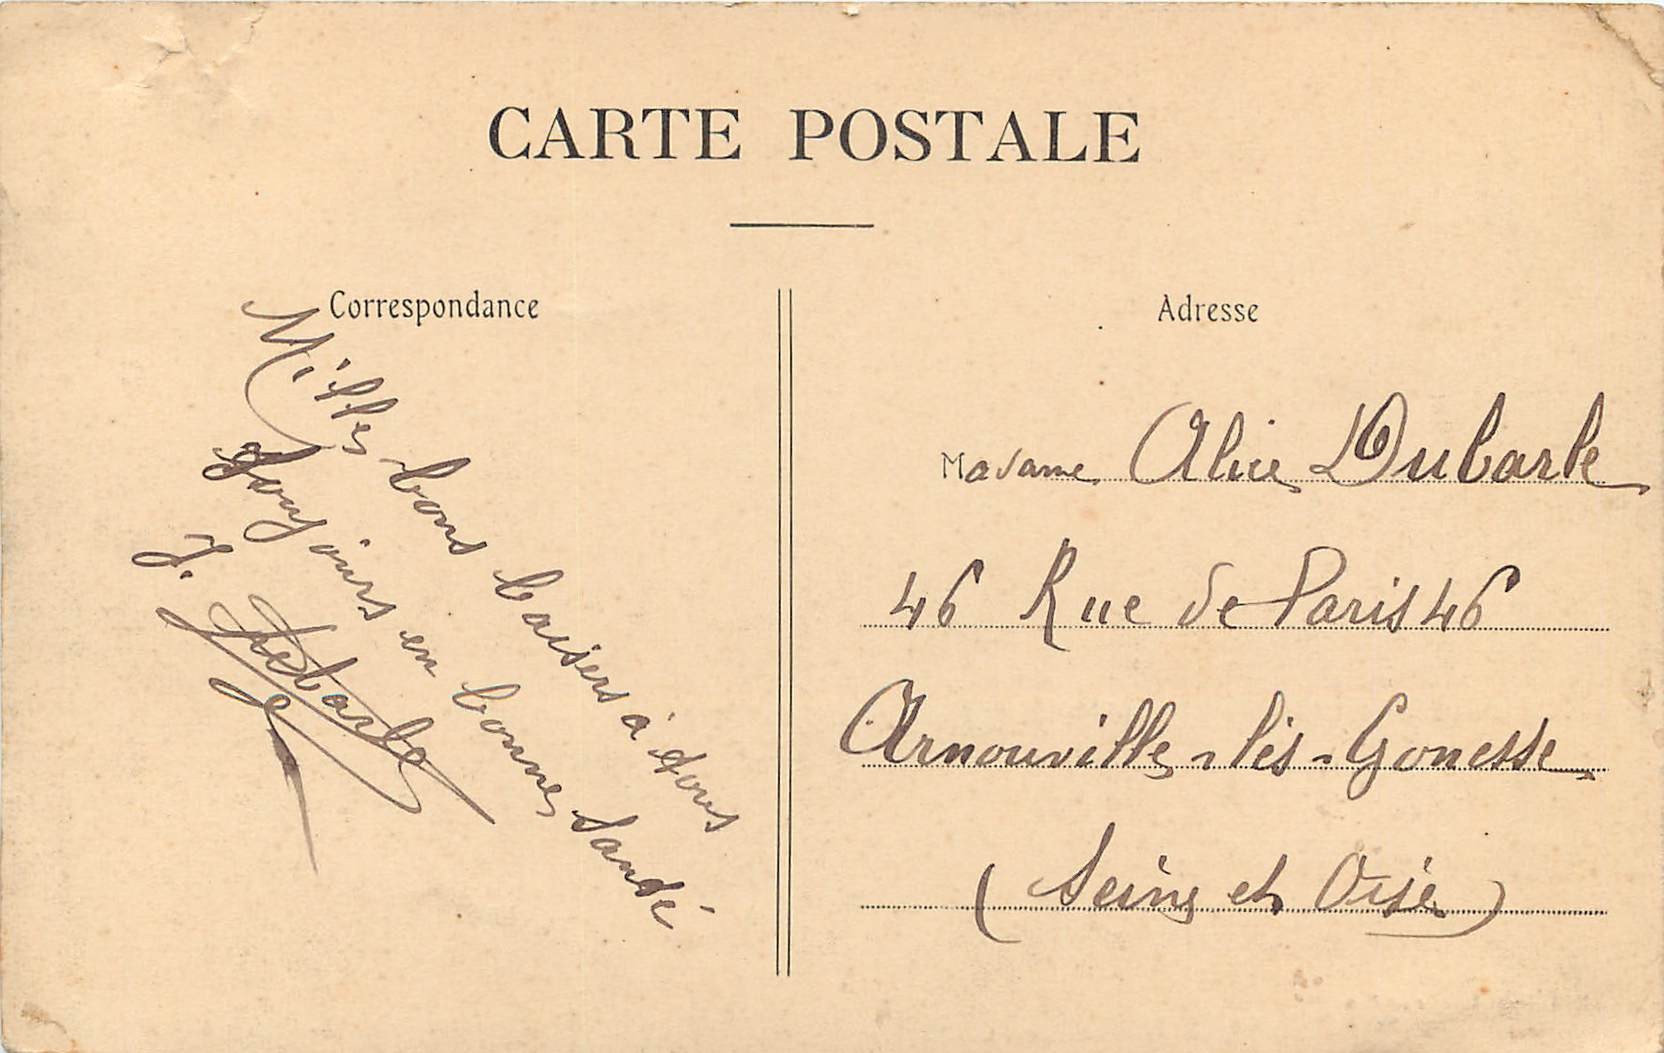 CARTE POSTALE
Correspondance
Milles bons baisers à tous
Toujours en bonne santé
J. Debarle
Adresse
Madame Alice Dubarle
46 Rue de Paris 46
Arnouville-lès-Gonesse
(Seine et Oise)